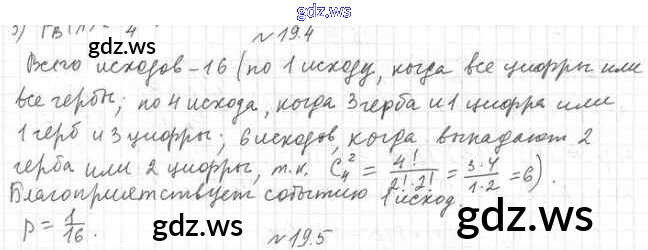 gdz.ww
№19.4
Всего исходов - 16 (по 1 исходу, когда все цифры или
все гербы; по 4 исхода, когда 3 герба и 1 цифра или
1 герб и 3 цифры; 6 исходов, когда выпадают 2
герба или 2 цифры, т.к. C₄² = 4!/2!·2! = 3·4/1·2 = 6).
Благоприятствует событию 1 исход.
p = 1/16.
gdz.ww
gdz.ww
№19.5